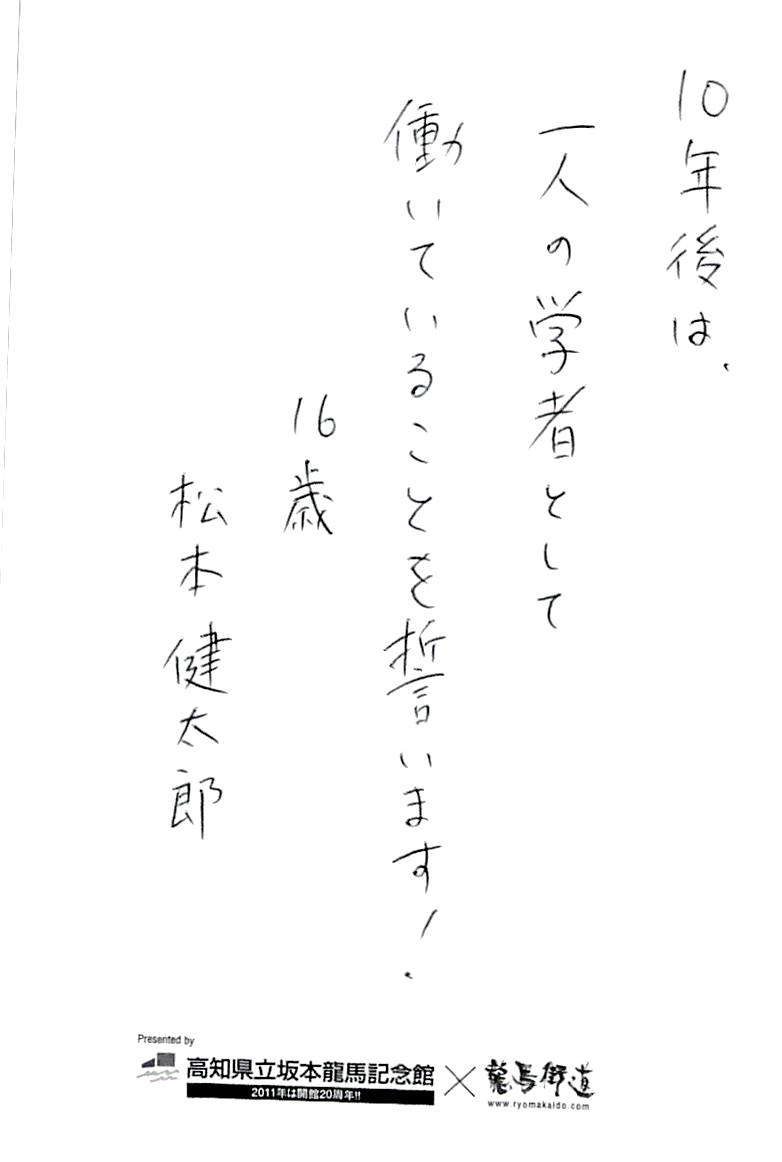 10年後は、
一人の学者として
働いていることを誓います！
16歳
松本健太郎
Presented by
高知県立坂本龍馬記念館×龍馬街道
2011年は開館20周年!!
www.ryomakaido.com